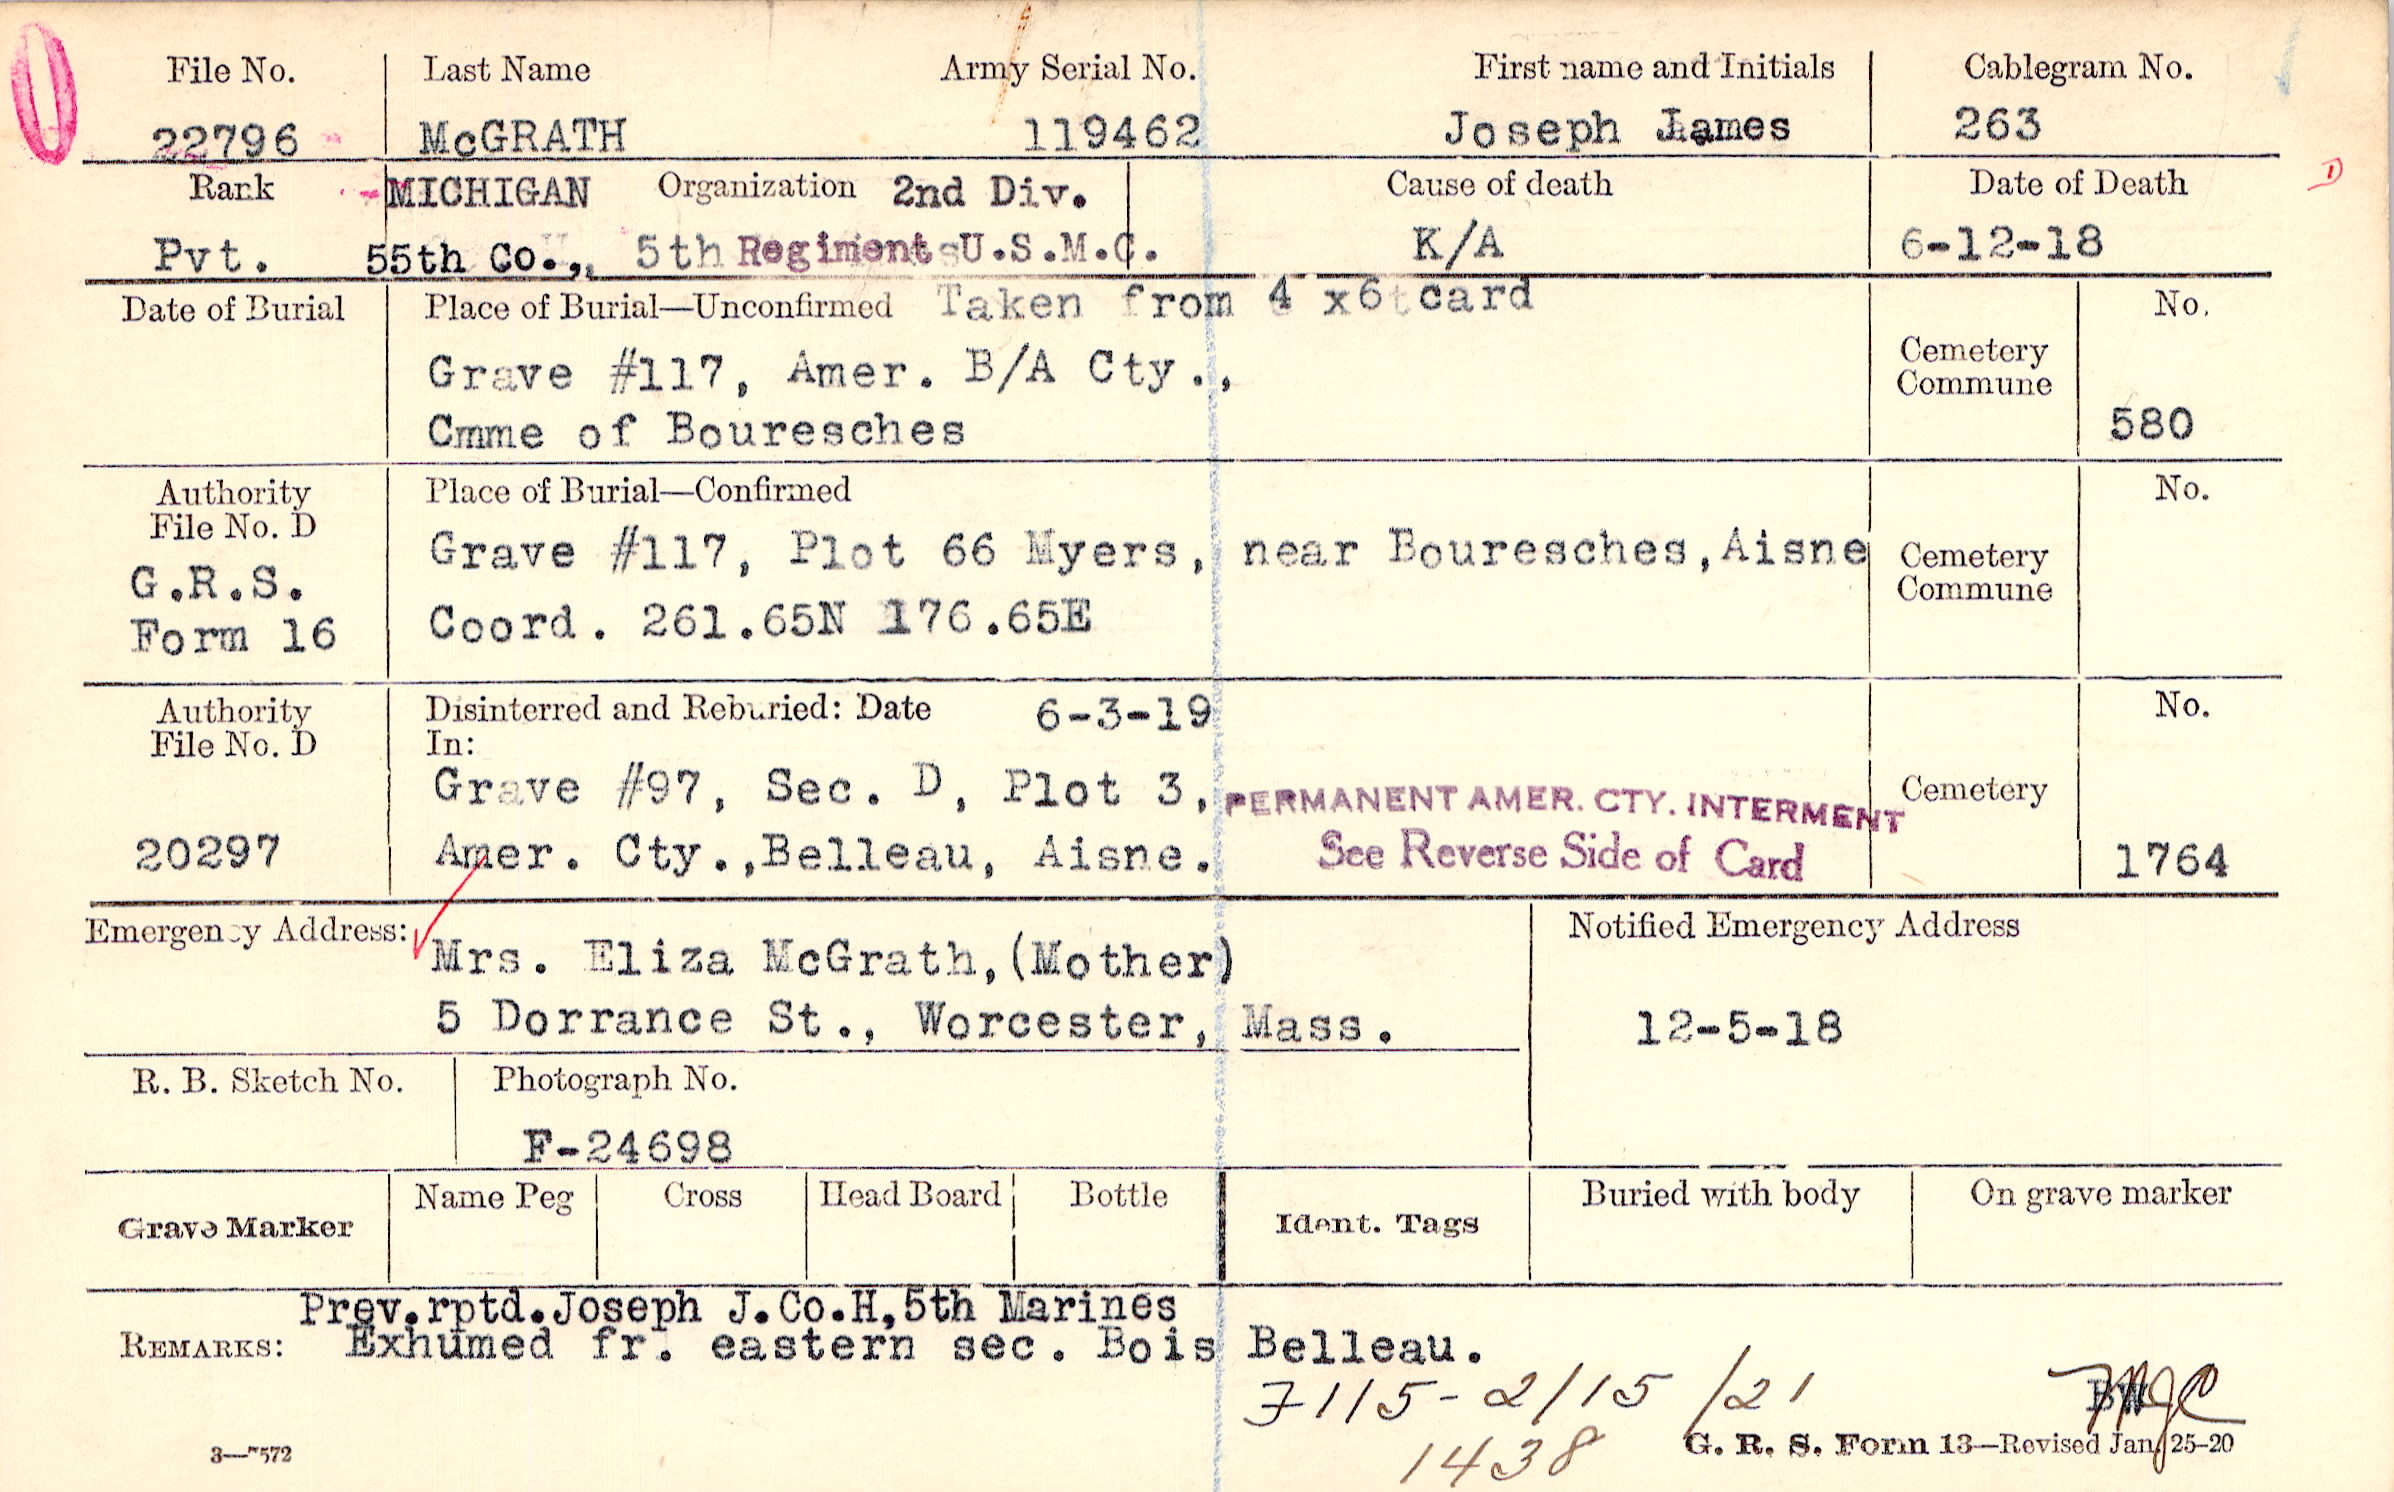 File No. Last Name Army Serial No. First name and Initials Cablegram No.
22796 McGRATH 119462 Joseph James 263
Rank MICHIGAN Organization 2nd Div. Cause of death Date of Death
Pvt. 55th Co., 5th Regiment U.S.M.C. K/A 6-12-18
Date of Burial Place of Burial—Unconfirmed Taken from 4 x6 card No.
Grave #117, Amer. B/A Cty., Cemetery Commune
Cmme of Bouresches 580
Authority File No. D Place of Burial—Confirmed No.
G.R.S. Grave #117, Plot 66 Myers, near Bouresches,Aisne Cemetery Commune
Form 16 Coord. 261.65N 176.65E
Authority File No. D Disinterred and Reburied: Date 6-3-19 No.
In:
Grave #97, Sec. D, Plot 3, PERMANENT AMER. CTY. INTERMENT Cemetery
20297 Amer. Cty.,Belleau, Aisne. See Reverse Side of Card 1764
Emergency Address: Notified Emergency Address
Mrs. Eliza McGrath,(Mother)
5 Dorrance St., Worcester, Mass. 12-5-18
R. B. Sketch No. Photograph No.
F-24698
Grave Marker Name Peg Cross Head Board Bottle Ident. Tags Buried with body On grave marker
Prev.rptd.Joseph J.Co.H,5th Marines
REMARKS: Exhumed fr. eastern sec. Bois Belleau.
2/15/21
1438
G. R. S. Form 13—Revised Jan. 25-20